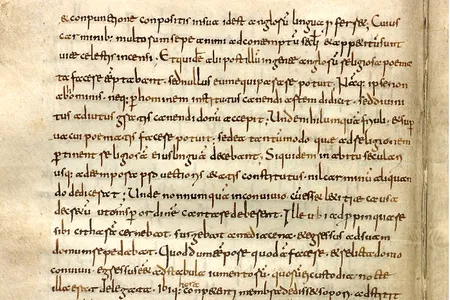 & conpunctione conpositis in sua id est anglorũ lingua p̱ferret; Cuius
carminib; multorum sepe animi ad contemptũ sc̄li & appetitũ sunt
uite celestis incensi. Et quidẽ alii post illũ in gente anglorũ religiosa poema
ta facere temptabant. sed nullus eum equiperare potuit. Nãq; ipse non
ab hominib; neq; per hominem institutus canendi artem didicit. sed diuini
tus adiutus gratis canendi donũ accepit; Unde nihil umquã friuoli & sup̱
uacui poematis facere potuit. sed ea tantummodo que ad religionem
pertinent religiosã eius linguã decebant. Siquidem in habitu seculari
usq; ad tempora p̱uectioris &atis constitutus. nil carminũ aliquan
do dedicerat; Unde nonnumquã in conuiuio. cũ ess& letitie causa
decretũ ut omnes p̱ ordinẽ cantare deberent; Ille ubi adp̱pinquare
sibi citharã cernebat. surgebat a media cena. & egressus ad suam
domum repedabat. Quod dum tempore quodã facer&. & relicta domo
conuiuii. egressus ess& ad stabula iumentorũ. quorũ ei custodia nocte
illa erat delegata. ibiq; hora conpetenti membra dediss& sopori. adstitit